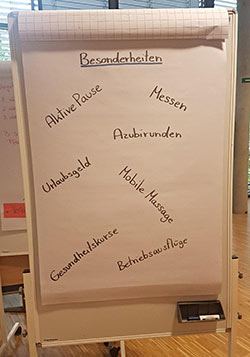 Besonderheiten
Aktive Pause
Messen
Azubirunden
Urlaubsgeld
Mobile Massage
Gesundheitskurse
Betriebsausflüge